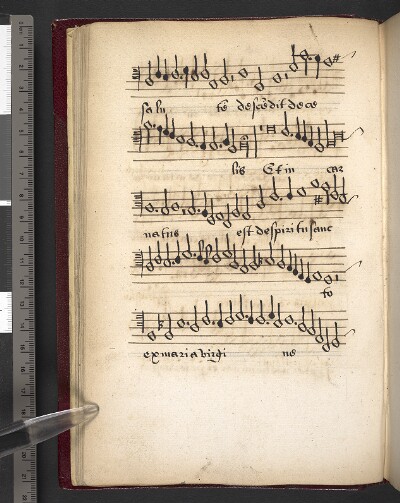 salu te descēdit de ce
lis Et in car
natus est de spiritu sanc
to
ex maria virgi ne